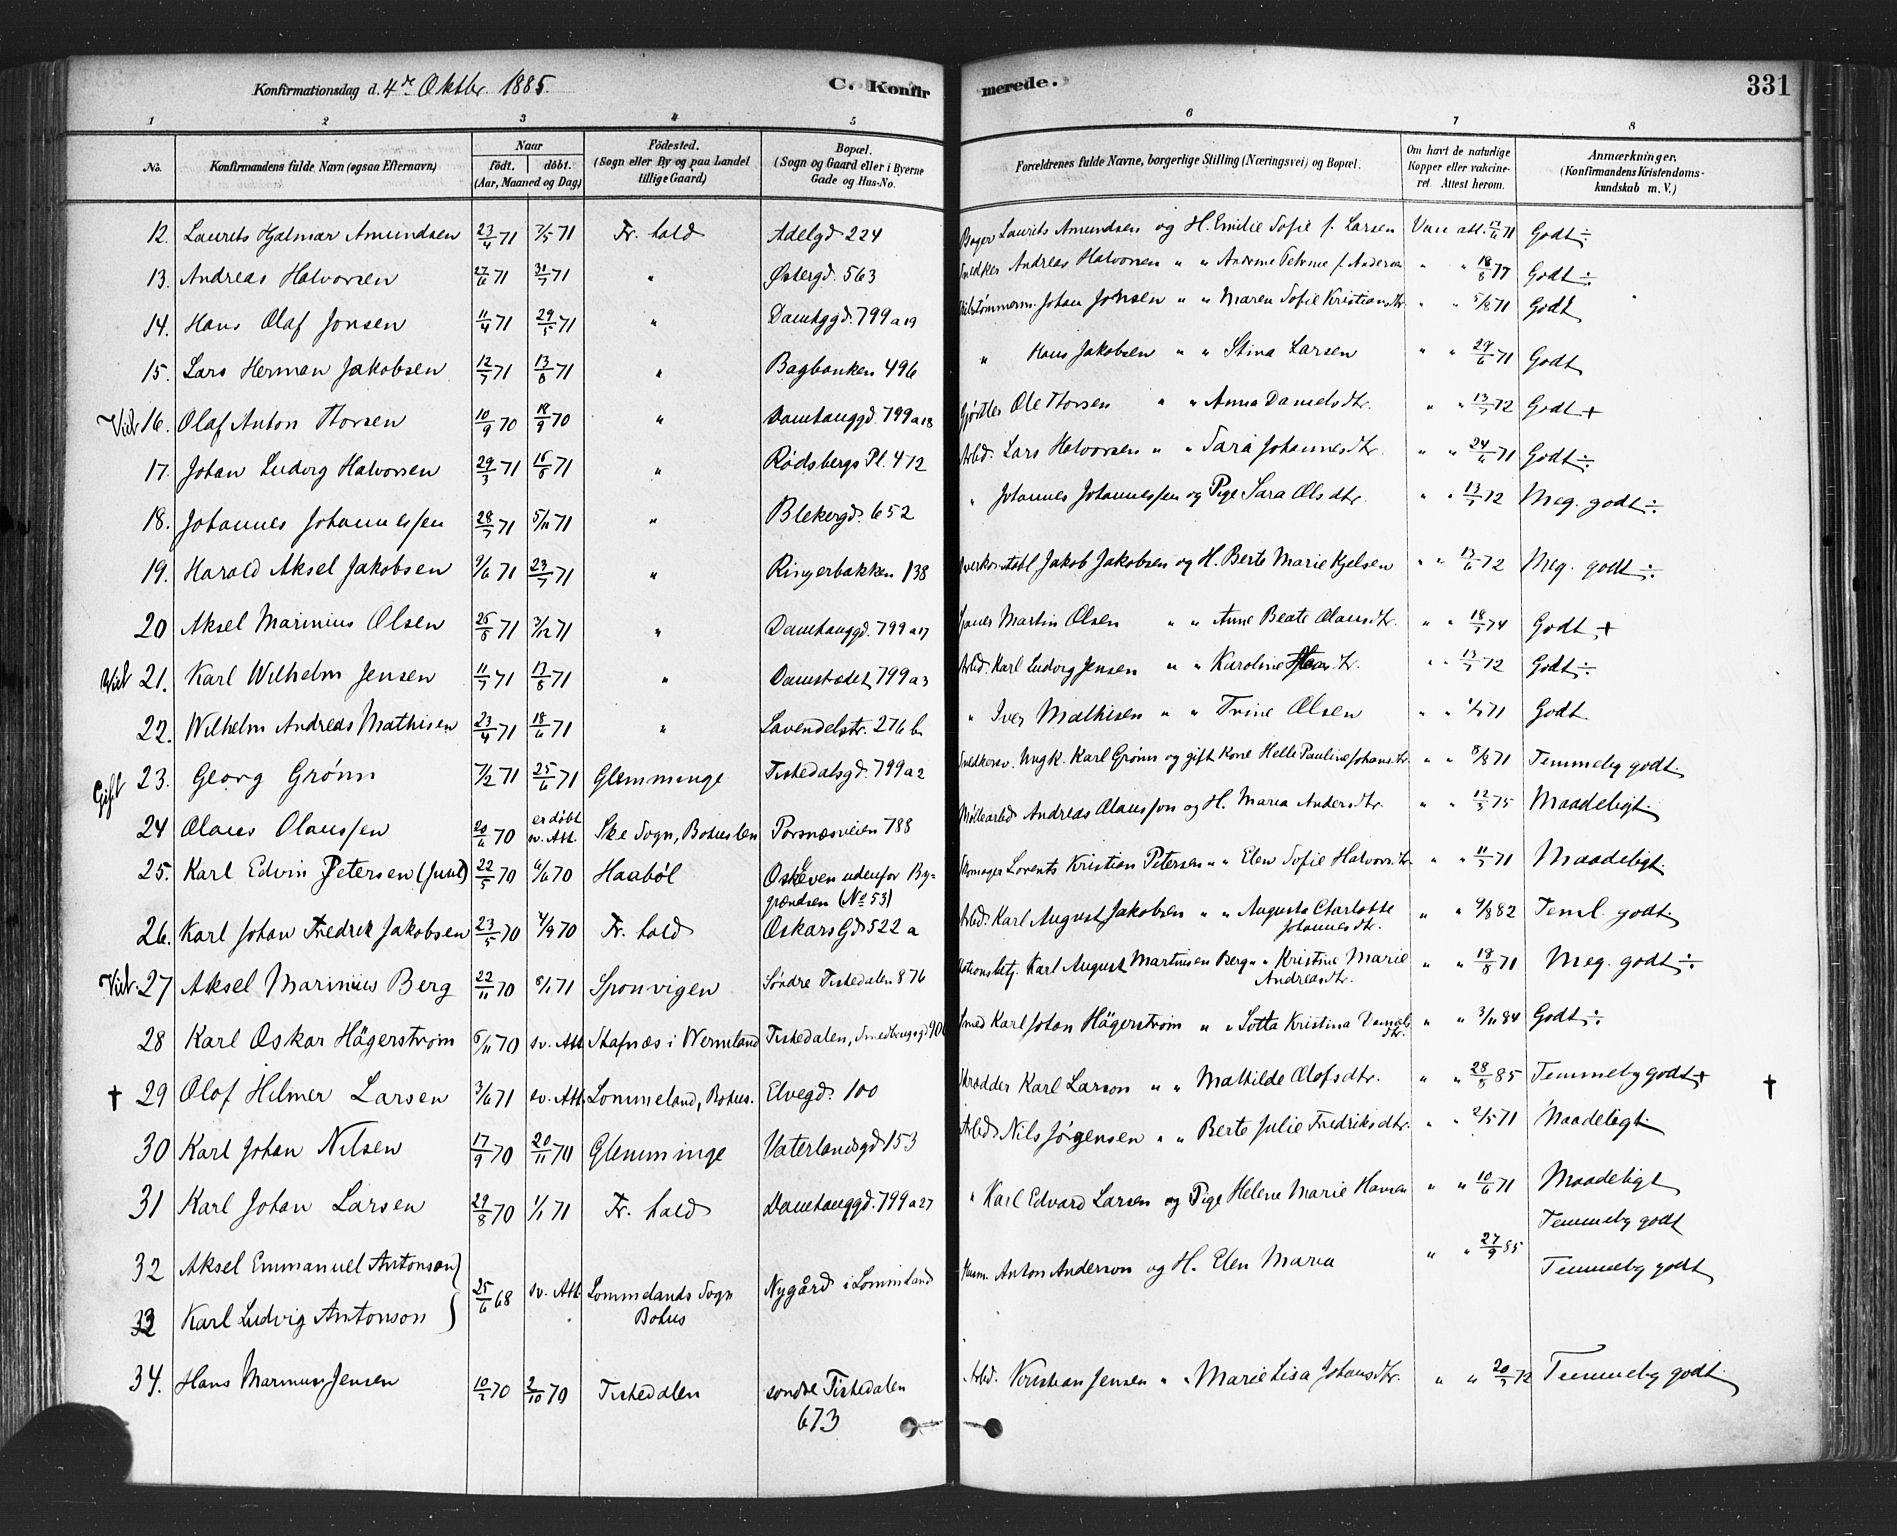 Konfirmationsdag d. 4de Oktbr. 1885.
C. Konfir
merede.
331
1 2 3 4 5 6 7 8
No.
Konfirmandens fulde Navn (ogsaa Efternavn)
Naar
födt. döbt.
(Aar, Maaned og Dag)
Födested.
(Sogn eller By og paa Landet
tillige Gaard)
Bopæl.
(Sogn og Gaard eller i Byerne
Gade og Hus-No.
Forældrenes fulde Navne, borgerlige Stilling (Næringsvei) og Bopæl.
Om havt de naturlige
Kopper eller vakcine-
ret. Attest herom.
Anmærkninger.
(Konfirmandens Kristendoms-
kundskab m. V.)
12. Laurits Hjalmar Amundsen 23/4 71 7/5 71 Fr. hald Adelgd 224 Bager Laurits Amundsen og H. Emilie Sofie f. Larsen Vac. att. 12/6 71 Godt ÷
13. Andreas Halvorsen 27/6 71 31/7 71 " Østergd. 563 Snedker Andreas Halvorsen " " " " 18/8 77 Godt ÷
14. Hans Olaf Jonsen 11/4 71 29/5 71 " 799 a 19 Johan Johsen " " Maren Sofie Kristiansdtr. " " 5/8 71 Godt
15. Lars Herman Jakobsen 12/7 71 13/8 71 " Bagbanken 496 " Hans Jakobsen " " Stina Larsen " " 29/6 71 Godt
16. Olaf Anton Thorsen 10/9 70 18/9 70 " Damhauggd 799 a 18 Gjørtler Ole Thorsen " " Anna Danielsdtr. " " 13/7 72 Godt +
17. Johan Ludvig Halvorsen 29/3 71 16/5 71 " Rødsbergs Pl. 472 Arbd. Lars Halvorsen " " Sara Johannesdtr. " " 24/6 71 Godt ÷
18. Johannes Johannessen 28/7 71 5/11 71 " Blekergd. 652 " Johannes Johannessen og Pige Sara Olsdtr. " " 13/7 72 Meg. godt ÷
19. Harald Aksel Jakobsen 9/6 71 23/7 71 " Ringerbakken 138 Jakob Jakobsen og H. Berte Marie Kjelsen " " 13/6 72 Meg. godt ÷
20 Aksel Marinius Olsen 26/8 71 3/12 71 " Damhauggd. 799 a 17 Martin Olsen " " Anne Beate Olausdtr. " " 18/7 74 Godt +
21. Karl Wilhelm Jensen 11/7 71 13/8 71 " Damstædet 799 a 3 Arbd. Karl Ludvig Jensen " " Karoline " " 13/7 72 Godt ÷
22. Wilhelm Andreas Mathisen 23/4 71 18/6 71 " Lavendelstr. 276 b " Iver Mathisen " " Trine Olsen " " 71 Godt
Gift 23. Georg Grönn 7/2 71 25/6 71 Glemminge Tistedalsgd. 799 a 2 Ungk. Karl Grönn og gift Kone Helle Pauline Johansdtr. " " 8/8 71 Temmelig godt
24 Olaus Olaussen 20/6 70 er døbt sv. Att. Ske Sogn, Bohuslen Porsnæsveien 788 Møllearbd Andreas Olaussøn og H. Maria Andersdtr. " " 12/3 75 Maadeligt
25. Karl Edvin Petersen (Juul) 22/5 70 6/6 70 Haaböl Oskleven udenfor By-
grændsen (No 53) Skomager Lorents Kristian Petersen " " Elen Sofie Halvorsdtr. " " 11/7 71 Maadeligt
26. Karl Johan Fredrik Jakobsen 23/5 70 4/9 70 Fr. hald Oskars Gd 522 a Arbd. Karl August Jakobsen " " Augusta Charlotte
Johannesdtr. " " 9/8 82 Teml. godt
27 Aksel Marinius Berg 22/11 70 8/1 71 Sponvigen Söndre Tistedalen 876 Karl August Martinsen Berg " " Kristine Marie
Andreasdtr. " " 18/8 71 Meg. godt ÷
28 Karl Oskar Hägerström 6/11 70 sv. Att. Stafnæs i Wermland Tistedalen, Smed Karl Johan Hägerström " " Lotta Kristina " " 3/11 84 Godt ÷
† 29 Olof Hilmer Larsen 3/6 71 sv. Att. Lommeland, Bohus. Elvegd. 100 Skrædder Karl Larson " " Mathilde Olofsdtr. " " 28/5 85 Temmelig godt + †
30 Karl Johan Nilsen 17/9 70 20/11 70 Glemminge Vaterlandsgd 153 Arbd Nils Jörgensen " " Berte Julie Fredriksdtr. " " 2/5 71 Maadeligt
31 Karl Johan Larsen 29/8 70 1/1 71 Fr. hald Damhauggd. 799 a 27 " Karl Edvard Larsen og Pige Helene Marie Hansen " " 10/6 71 Maadeligt
32 Aksel Emmanuel Antonson } Temmelig godt
25/6 68 sv. Att. Lommelands Sogn
Bohus Nygård i Lommland Anton Anderson og H. Elen Maria " " 27/9 85
33 Karl Ludvig Antonson } Temmelig godt
34. Hans Marinus Jensen 10/7 70 2/10 70 Tistedalen søndre Tistedalen
673 Arbd. Kristian Jensen " " Marie Lisa Johansdtr. " " 20/7 72 Temmelig godt